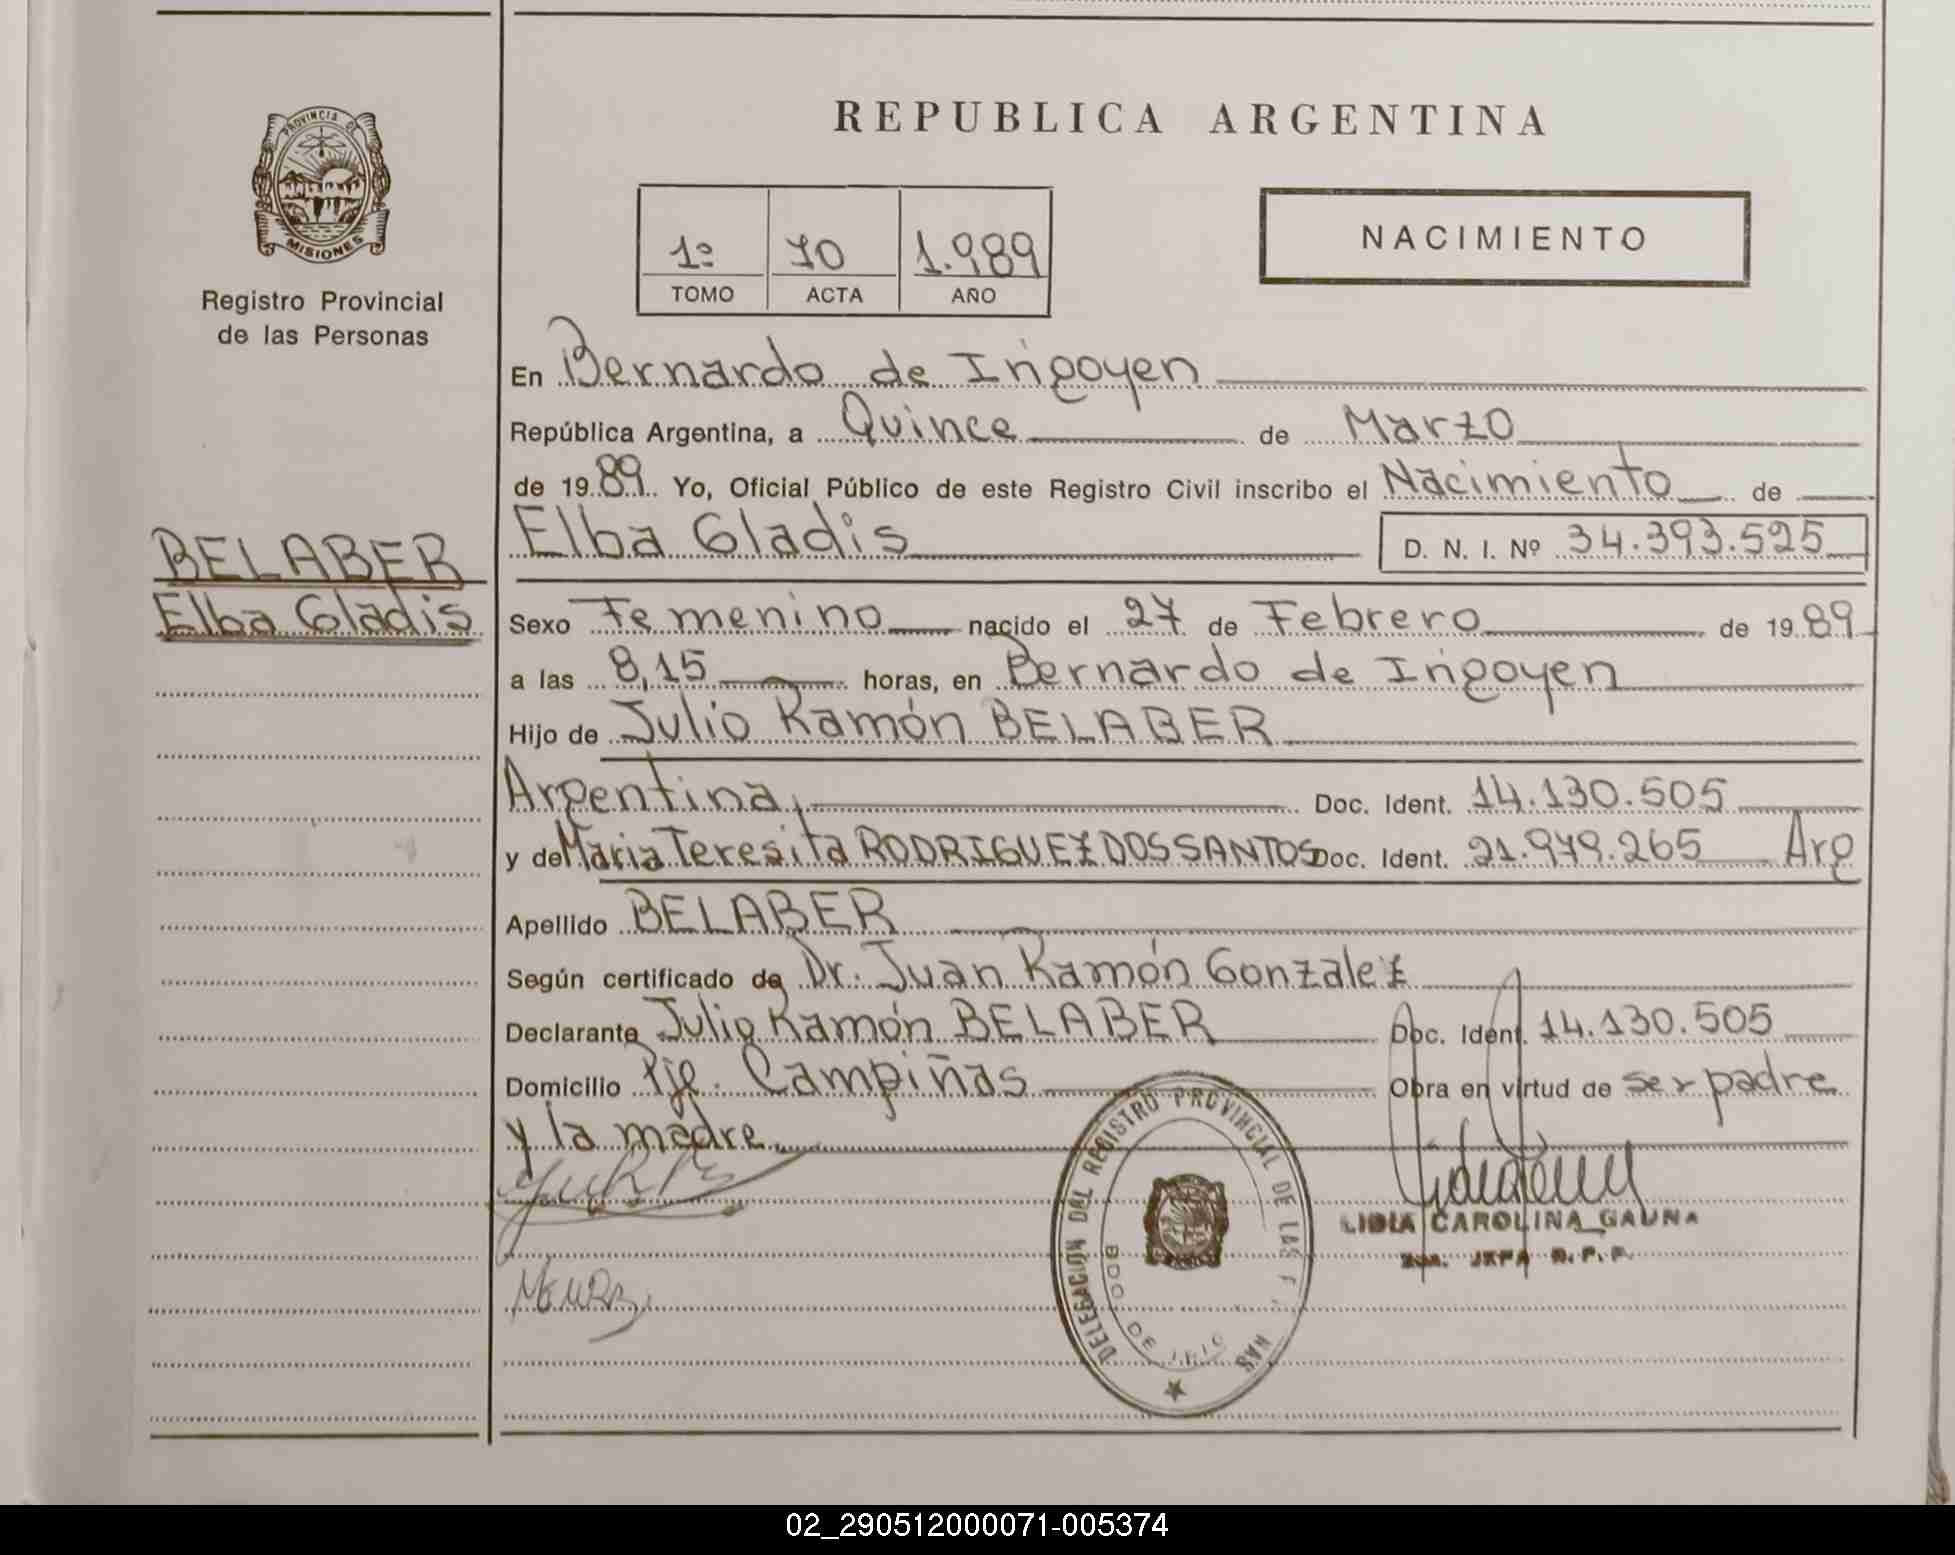 REPUBLICA ARGENTINA
PROVINCIA DE
MISIONES
Registro Provincial
de las Personas
1º 70 1.989
TOMO ACTA AÑO
NACIMIENTO
En Bernardo de Irigoyen
República Argentina, a Quince de Marzo
de 1989 Yo, Oficial Público de este Registro Civil inscribo el Nacimiento de
Elba Gladis D. N. I. Nº 34.393.525
BELABER
Elba Gladis
Sexo Femenino nacido el 27 de Febrero de 1989
a las 8,15 horas, en Bernardo de Irigoyen
Hijo de Julio Ramón BELABER
Argentina, Doc. Ident. 14.130.505
y de Maria Teresita RODRIGUEZ DOS SANTOS Doc. Ident. 21.979.265 Arg
Apellido BELABER
Según certificado de Dr. Juan Ramón Gonzalez
Declarante Julio Ramón BELABER Doc. Ident. 14.130.505
Domicilio Pje. Campiñas Obra en virtud de ser padre
y la madre.
DELEGACION DAL REGISTRO PROVINCIAL DE LAS
BDO. DE
LIDIA CAROLINA GAUNA
JEFA R.P.P.
02_290512000071-005374